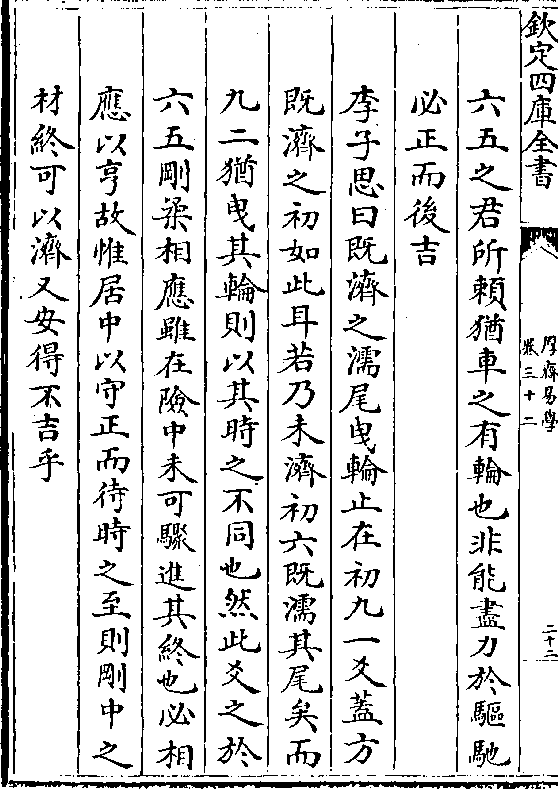 欽定四庫全書
厚齋易學
卷三十二
二十二
六五之君所頼猶車之有輪也非能盡力於驅馳
必正而後吉
李子思曰既濟之濡尾曳輪止在初九一爻蓋方
既濟之初如此耳若乃未濟初六既濡其尾矣而
九二猶曳其輪則以其時之不同也然此爻之於
六五剛柔相應雖在險中未可驟進其終也必相
應以亨故惟居中以守正而待時之至則剛中之
材終可以濟又安得不吉乎